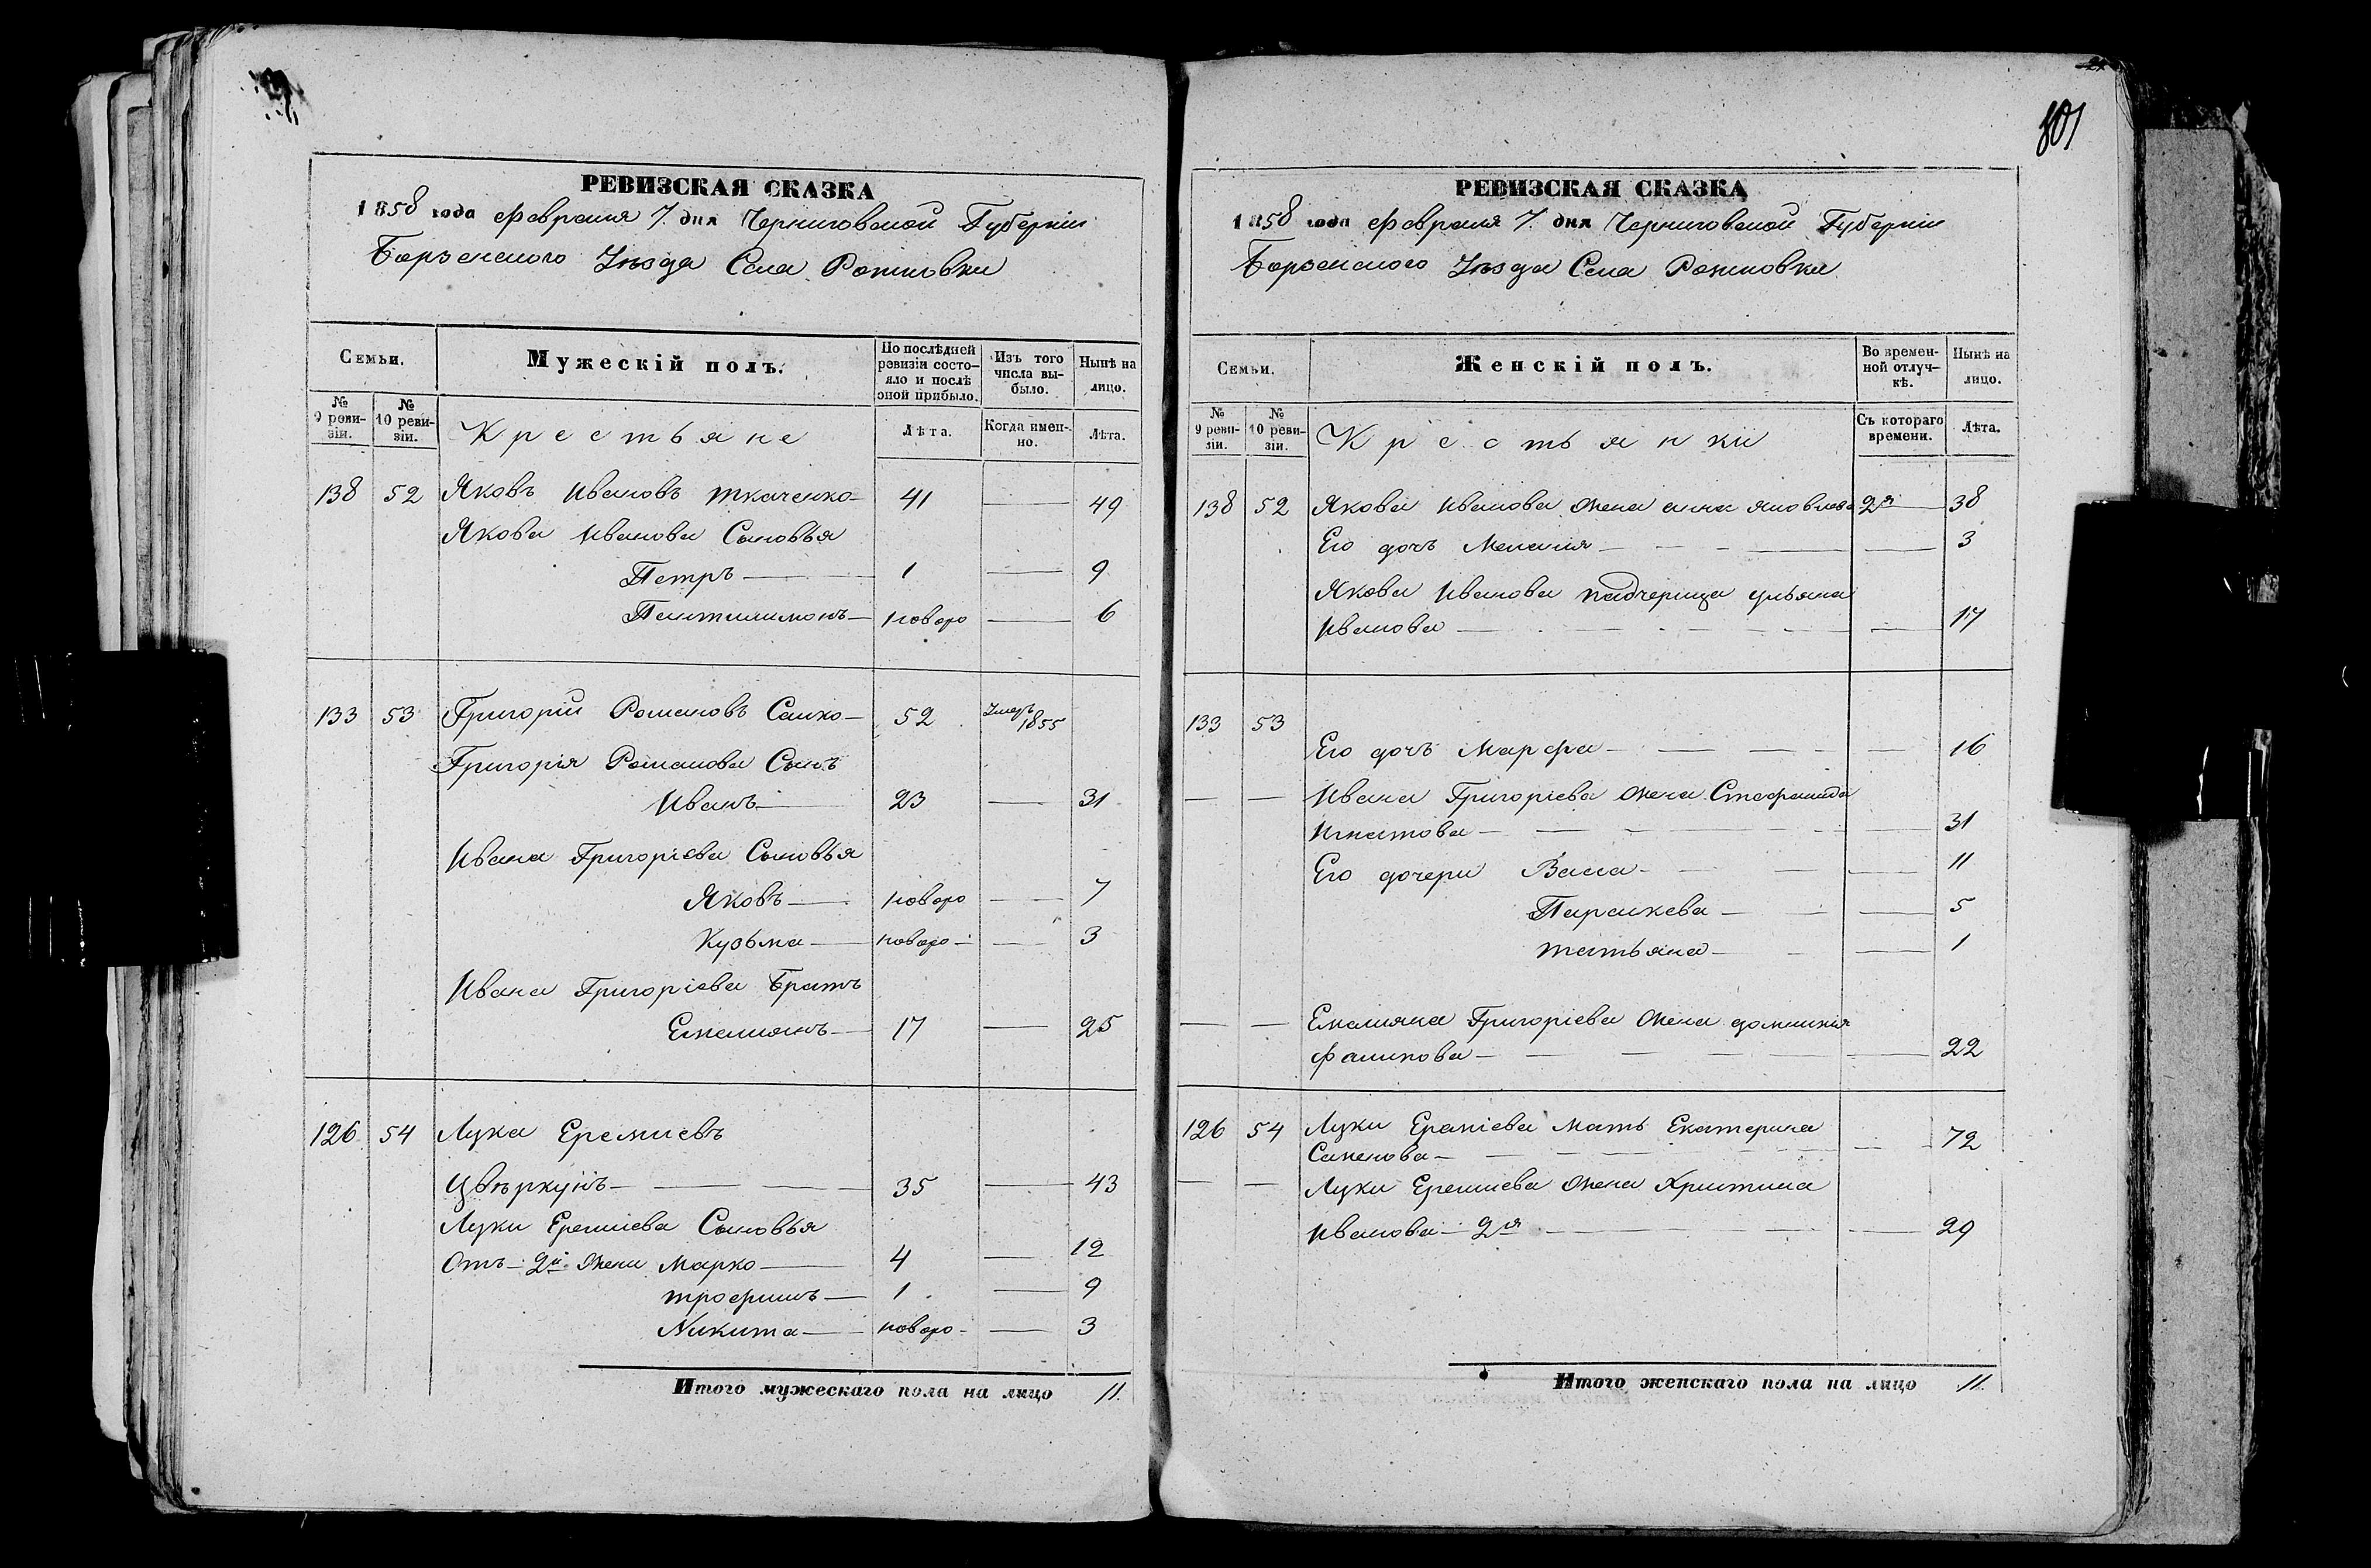 РЕВИЗСКАЯ СКАЗКА
1858 года Февраля 7. дня Черниговской Губерніи
Борзенского Уѣзда Села Рожновки
Семьи.
Мужескій полъ.
По послѣдней ревизіи состояло и послѣ оной прибыло.
Изъ того числа выбыло.
Нынѣ на лицо.
№ 9 ревизіи.
№ 10 ревизіи.
Крестьяне
Лѣта.
Когда именно.
Лѣта.
138 52 Яковъ Ивановъ Ткаченко — 41 — 49
Якова Иванова Сыновья
Петръ — 1 — 9
Пантилимонъ — новоро — 6
133 53 Григорій Романовъ Сашко — 52 Умеръ 1855
Григорія Романова Сынъ
Иванъ — 23 — 31
Ивана Григоріева Сыновья
Яковъ — новоро — 7
Кузьма — новоро — 3
Ивана Григоріева Братъ
Емельянъ — 17 — 25
126 54 Лука Еремиевъ
Цвѣркунъ — 35 — 43
Луки Еремиева Сыновья
Отъ 2й Жени Марко — 4 — 12
Трофимъ — 1 — 9
Никита — новоро — 3
Итого мужескаго пола на лицо 11.
801
РЕВИЗСКАЯ СКАЗКА
1858 года Февраля 7. дня Черниговской Губерніи
Борзенского Уѣзда Села Рожновки
Семьи.
Женскій полъ.
Во временной отлучкѣ.
Нынѣ на лицо.
№ 9 ревизіи.
№ 10 ревизіи.
Крестьянки
Съ котораго времени.
Лѣта.
138 52 Якова Иванова Жена анна яковлева 2я — 38
Его дочь Мелания — 3
Якова Иванова падчерица ульяна
Иванова — 17
133 53
Его дочь Марфа — 16
— — Ивана Григоріева Жена Стефанида
Игнатова — 31
Его дочери Васса — 11
Параскева — 5
татьяна — 1
— — Емельяна Григоріева Жена домникия
— 22
126 54 Луки Ереміева Мать Екатерина
Семенова — 72
— — Луки Еремиева Жена Християа
Иванова — 2я — 29
Итого женскаго пола на лицо 11.